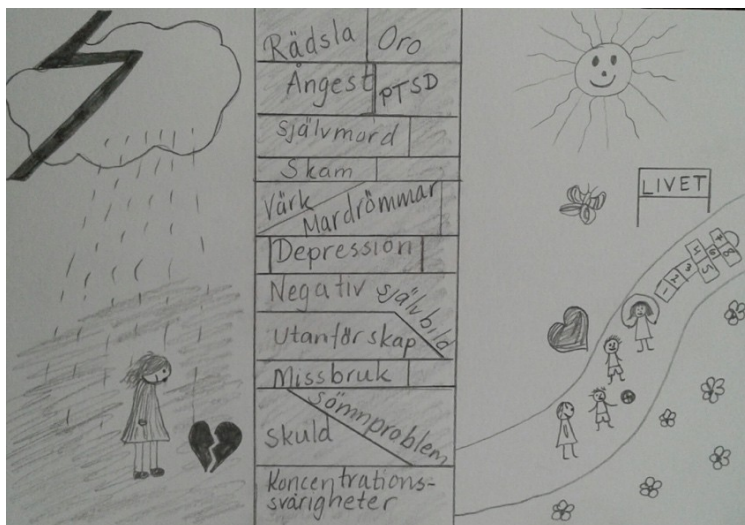 Rädsla
Oro
Ångest
PTSD
självmord
Skam
Värk
Mardrömmar
Depression
Negativ självbild
Utanförskap
Missbruk
Sömnproblem
skuld
Koncentrations-
svårigheter
LIVET
1 2 3 4 5 6 7 8